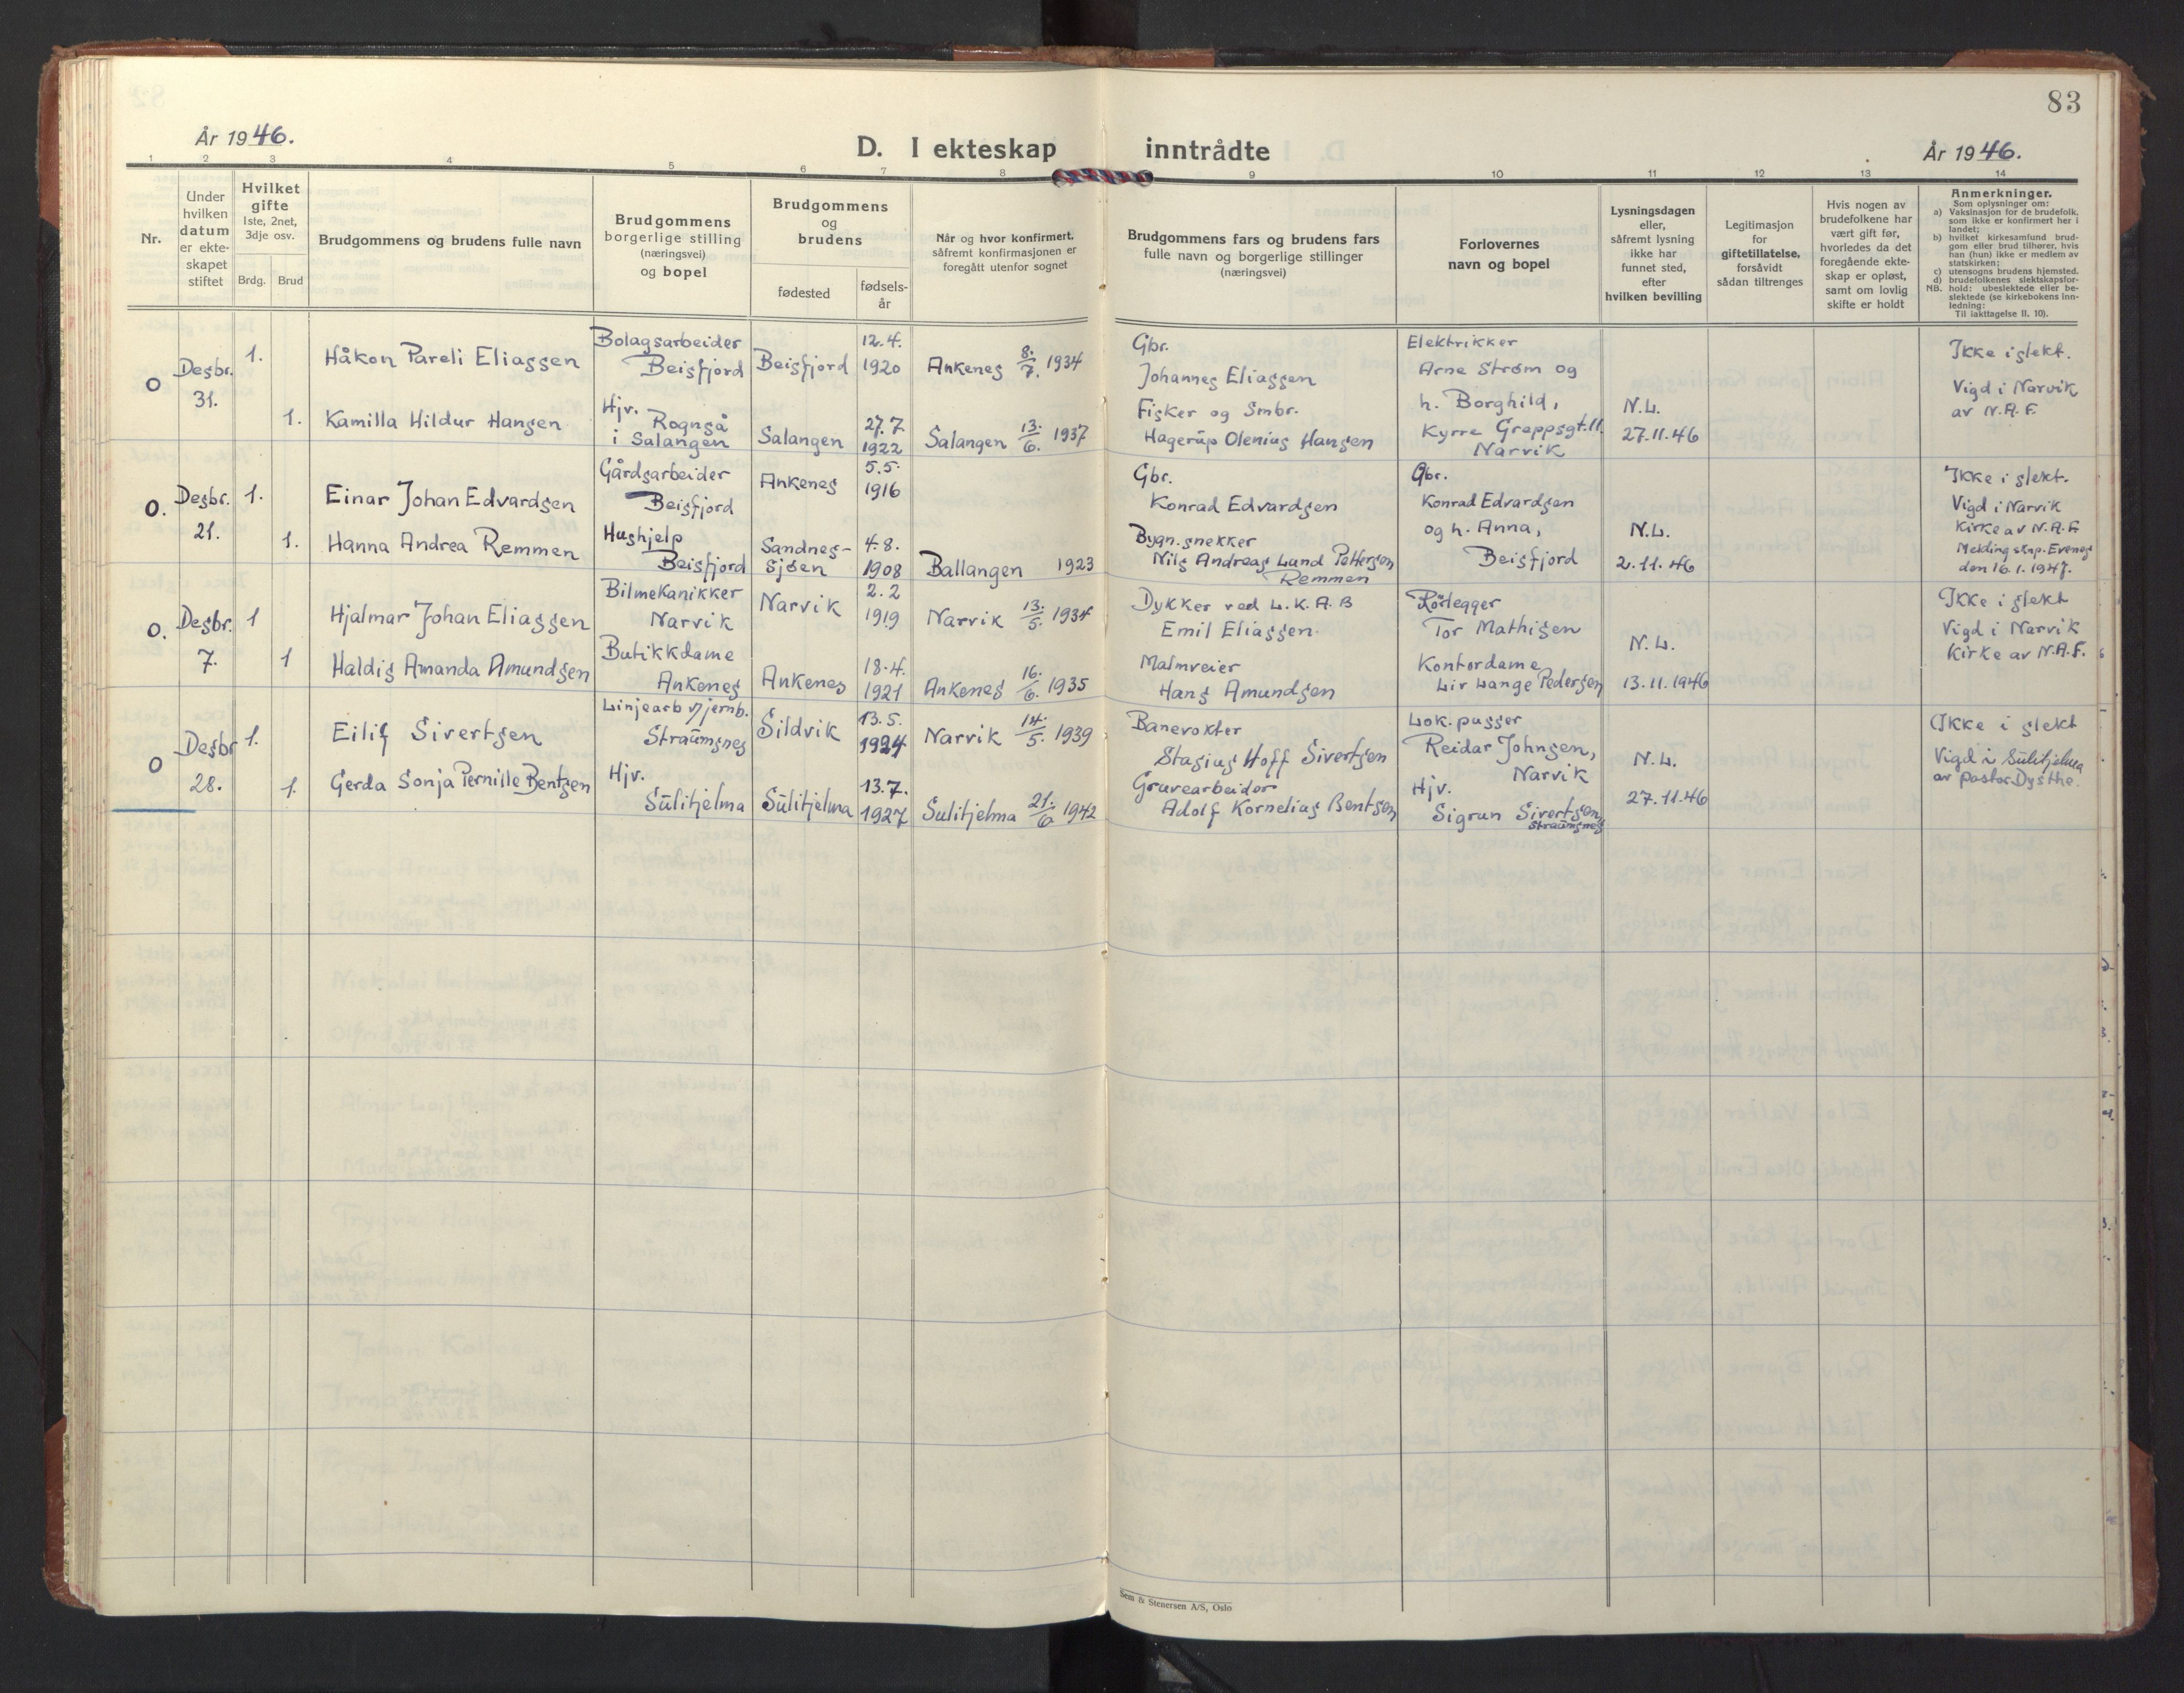 83
År 1946.
D. I ekteskap inntrådte
År 1946.
1 2 3 4 5 6 7 8 9 10 11 12 13 14
Nr.
Under
hvilken
datum
er ekte-
skapet
stiftet
Hvilket
gifte
1ste, 2net,
3dje osv.
Brdg. Brud
Brudgommens og brudens fulle navn
Brudgommens
borgerlige stilling
(næringsvei)
og bopel
Brudgommens
og
brudens
fødested
fødsels-
år
Når og hvor konfirmert.
såfremt konfirmasjonen er
foregått utenfor sognet
Brudgommens fars og brudens fars
fulle navn og borgerlige stillinger
(næringsvei)
Forlovernes
navn og bopel
Lysningsdagen
eller,
såfremt lysning
ikke har
funnet sted,
efter
hvilken bevilling
Legitimasjon
for
giftetillatelse,
forsåvidt
sådan tiltrenges
Hvis nogen av
brudefolkene har
vært gift før,
hvorledes da det
foregående ekte-
skap er opløst,
samt om lovlig
skifte er holdt
Anmerkninger.
Som oplysninger om:
a) Vaksinasjon for de brudefolk.
som ikke er konfirmert her i
landet;
b) hvilket kirkesamfund brud-
gom eller brud tilhører, hvis
han (hun) ikke er medlem av
statskirken;
c) utensogns brudens hjemsted.
d) brudefolkenes slektskapsfor-
NB. hold: ubeslektede eller be-
slektede (se kirkebokens inn-
ledning:
Til iakttagelse II. 10).
O
Desbr.
31.
1.
Håkon Pareli Eliassen
Bolagsarbeider
Beisfjord
Beisfjord
12.4.
1920
Ankenes 8./7. 1934
Gbr.
Johannes Eliassen
Elektrikker
Arne Strøm og
h. Borghild,
Kyrre Greppsgt. 11.
Narvik
N.L.
27.11.46
Ikke i slekt.
Vigd i Narvik
av N.A.F.
1.
Kamilla Hildur Hansen
Hjv.
Rognså
i Salangen
Salangen
27.7
1922
Salangen 13./6. 1937
Fisker og Smbr.
Hagerup Olenius Hansen
O.
Desbr.
21.
1.
Einar Johan Edvardsen
Gårdsarbeider
Beisfjord
Ankenes
5.5.
1916
Gbr.
Konrad Edvardsen
Gbr.
Konrad Edvardsen
og h. Anna,
Beisfjord
N.L.
2.11.46
Ikke i slekt.
Vigd i Narvik
Kirke av N.A.F
Melding sknp. Evenes
den 16.1.1947.
1.
Hanna Andrea Remmen
Hushjelp
Beisfjord
Sandnes-
sjøen
4.8.
1908
Ballangen 1923
Bygn.snekker
Nils Andreas Lund Pettersen
Remmen
O.
Desbr.
7.
1
Hjalmar Johan Eliassen
Bilmekanikker
Narvik
Narvik
2.2
1919
Narvik 13./5. 1934
Dykker ved L.K.A.B
Emil Eliassen.
Rørlegger
Tor Mathisen
Kontordame
Liv Lange Pedersen
N.L.
13.11.1946
Ikke i slekt
Vigd i Narvik
Kirke av N.A.F.
1
Haldis Amanda Amundsen
Butikkdame
Ankenes
Ankenes
18.4.
1921
Ankenes 16./6. 1935
Malmveier
Hans Amundsen
O
Desbr
28.
1.
Eilif Sivertsen
Linjearb v/jernb.
Straumsnes
Sildvik
13.5.
1924
Narvik 14./5. 1939
Banevokter
Stasius Hoff Sivertsen
Lok.pusser
Reidar Johnsen,
Narvik
Hjv.
Sigrun Sivertsen,
Straumsnes
N.L.
27.11.46
Ikke i slekt
Vigd i Sulitjelma
av pastor Dysthe.
1.
Gerda Sonja Pernille Bentsen
Hjv.
Sulitjelma
Sulitjelma
13.7.
1927
Sulitjelma 21./6 1942
Gruvearbeider
Adolf Kornelius Bentsen
Sem & Stenersen A/S, Oslo